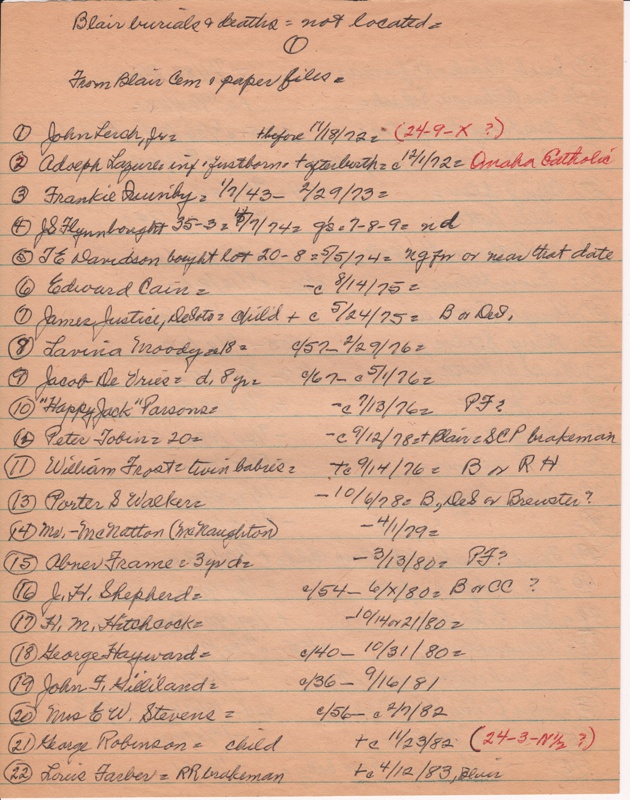 Blair burials & deaths = not located =
①
From Blair Cem & paper files =
① John Lerch, Jr = + before 11/18/72 = (24-9-X ?)
② Adolph Lazure = inf. firstborn + afterbirth = c 12/1/72 = Omaha Catholic
③ Frankie Quinby = 1/7/43 - 2/29/73 =
④ JS Flynn bought 35-3 = /7/74 = g's = 7-8-9 = nd
⑤ T E Davidson bought lot 20-8 = 5/5/74 = ng for or near that date
⑥ Edward Cain = - c 8/14/75 =
⑦ James Justice, DeSoto = child + c 5/24/75 = B or DeS.
⑧ Lavina Moody = 18 = c/57 - 2/29/76 =
⑨ Jacob De Vries = d. 8 yr = c/67 - c 5/1/76 =
⑩ "Happy Jack" Parsons = - c 7/13/76 = PF ?
Peter Tobin = 20 = - c 9/12/78 = + Blair = SCP brakeman
⑪ William Frost = twin babies = + c 9/14/76 = B or RH
⑬ Porter S Walker = - 10/6/78 = B, DeS or Brewster ?
⑭ Mr. - McNatton (McNaughton) - 4/1/79 =
⑮ Abner Frame = 3 yr d = - 3/13/80 = PF ?
⑯ J. H. Shepherd = c/54 - 6/X/80 = B or CC ?
⑰ H. M. Hitchcock = - 10/14 or 21/80 =
⑱ George Hayward = c/40 - 10/31/80 =
⑲ John F. Gilliland = c/36 - 9/16/81
⑳ Mrs E W. Stevens = c/56 - c 2/7/82
㉑ George Robinson = child + c 11/23/82 (24-3-N½ ?)
㉒ Louis Farber = RR brakeman + c 4/12/83, Blair